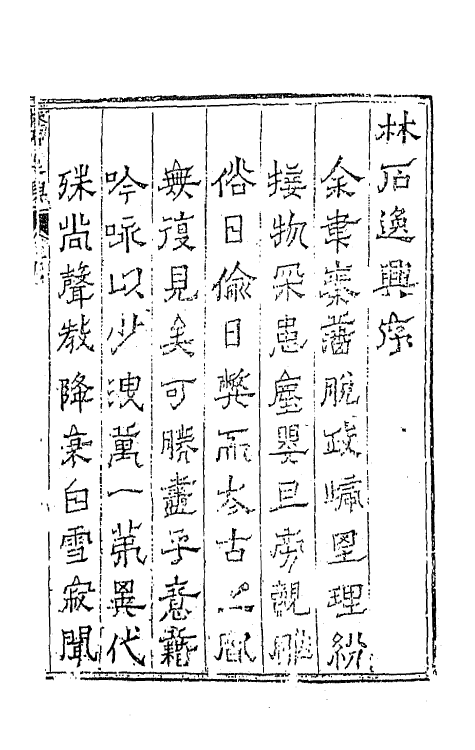 林石逸興序
余韋藁薔脫政㷌里理紛
接物采患塵嬰旦旁觀雕
俗日偷日獘而太古之風
無復見矣可勝盡乎意藉
吟咏以少洩萬一苐異代
殊尚聲教降衰白雪寂聞